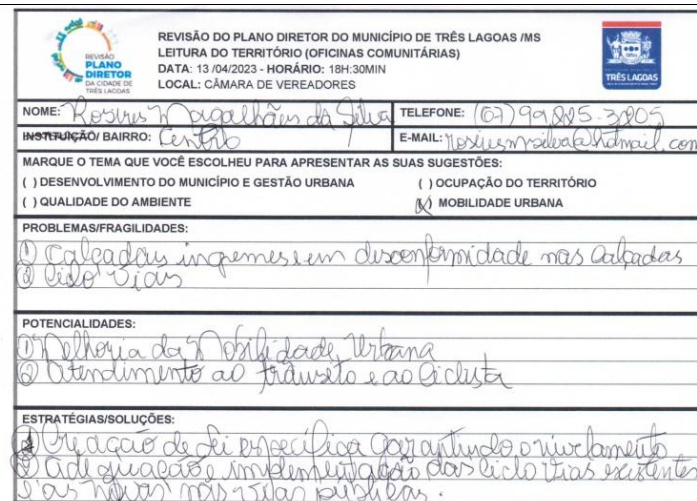 REVISÃO
PLANO
DIRETOR
DA CIDADE DE
TRÊS LAGOAS
REVISÃO DO PLANO DIRETOR DO MUNICÍPIO DE TRÊS LAGOAS /MS
LEITURA DO TERRITÓRIO (OFICINAS COMUNITÁRIAS)
DATA: 13 /04/2023 - HORÁRIO: 18H:30MIN
LOCAL: CÂMARA DE VEREADORES
TRÊS LAGOAS
NOME: Rosires Magalhães da Silva TELEFONE: (67) 99825-3205
INSTITUIÇÃO/ BAIRRO: Centro E-MAIL: rosiresmsilva@hotmail.com
MARQUE O TEMA QUE VOCÊ ESCOLHEU PARA APRESENTAR AS SUAS SUGESTÕES:
( ) DESENVOLVIMENTO DO MUNICÍPIO E GESTÃO URBANA ( ) OCUPAÇÃO DO TERRITÓRIO
( ) QUALIDADE DO AMBIENTE (X) MOBILIDADE URBANA
PROBLEMAS/FRAGILIDADES:
① Calçadas ingremes e em desconformidade nas Calçadas
② Ciclo Vias
POTENCIALIDADES:
① Melhoria da Mobilidade Urbana
② Atendimento ao trânsito e ao Ciclista
ESTRATÉGIAS/SOLUÇÕES:
① Creação de Lei específica garantindo o nivelamento
② adequação e implementação das ciclo vias existentes
e as novas nas vias públicas.